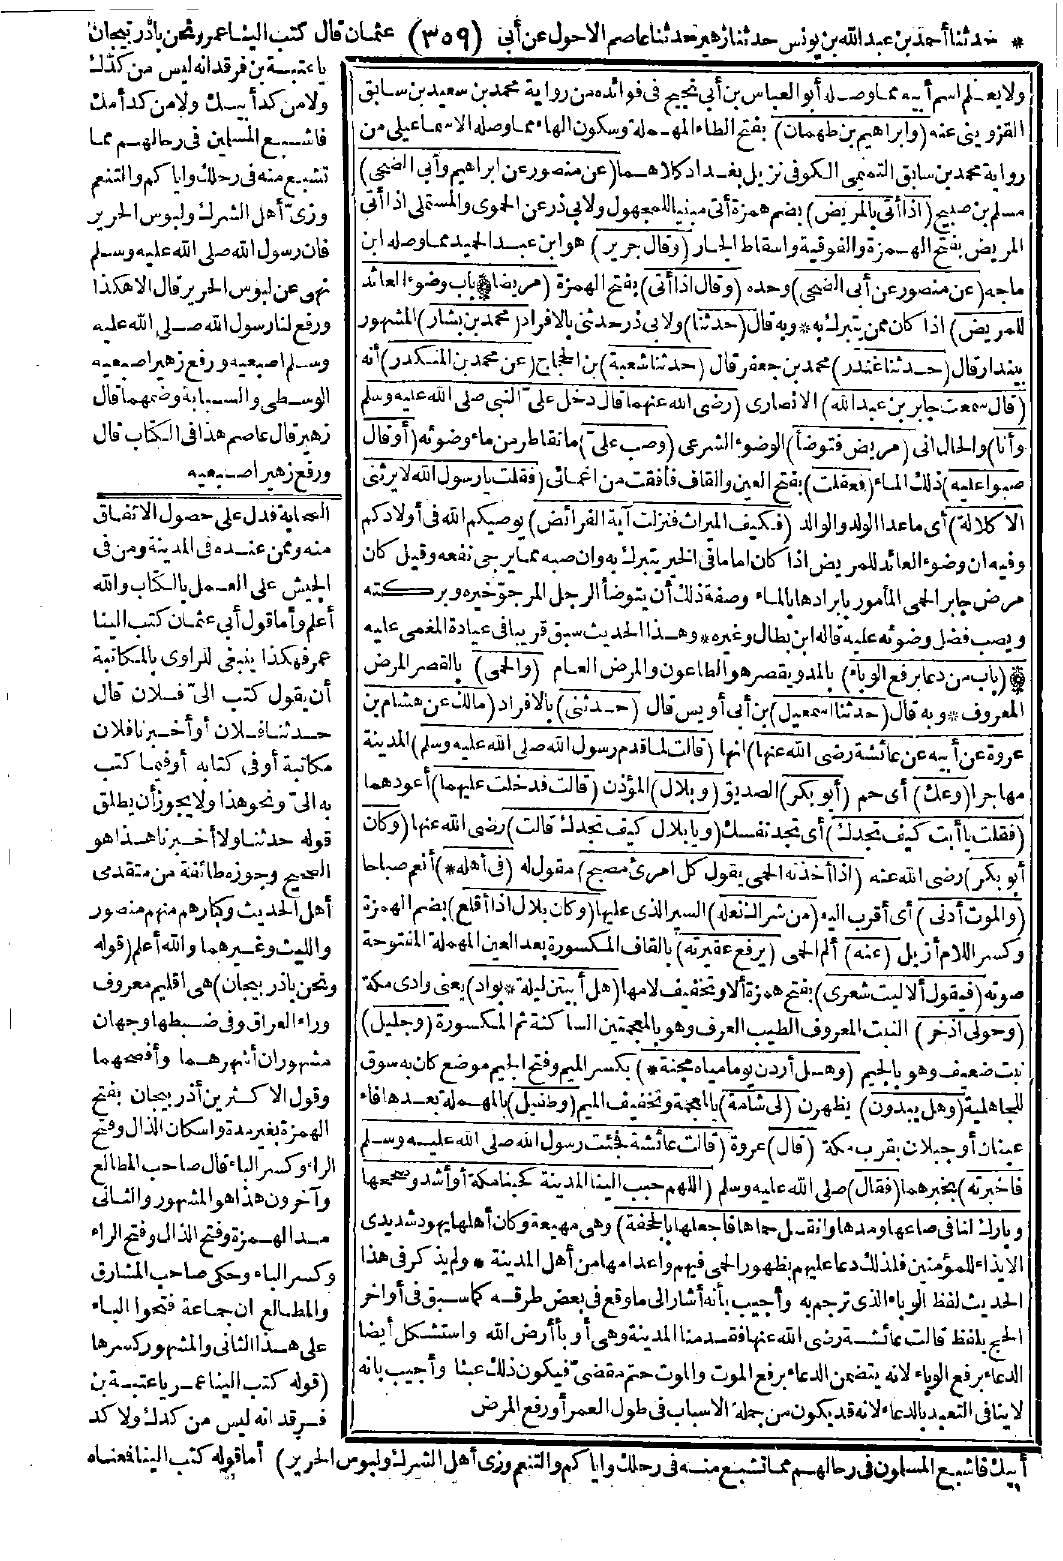 * حدثنا أحمد بن عبد الله بن يونس حدثنا زهير حدثنا عاصم الاحول عن أبي (٣٥٩) عثمان قال كتب الينا عمر ونحن باذر بيجان
يا عتبة بن فرقد انه ليس من كدك
ولا من كد أبيك ولا من كد أمك
فاشبع المسلمين في رحالهم مما
تشبع منه في رحلك واياكم والتنعم
وزى أهل الشرك ولبوس الحرير
فان رسول الله صلى الله عليه وسلم
نهى عن لبوس الحرير قال الا هكذا
ورفع لنا رسول الله صلى الله عليه
وسلم اصبعيه ورفع زهير اصبعيه
الوسطى والسبابة وضمهما قال
زهير قال عاصم هذا في الكتاب قال
ورفع زهير اصبعيه
ولا يعلم اسم أبيه مما وصله أبو العباس بن أبي نجيح في فوائده من رواية محمد بن سعيد بن سابق
القزويني عنه (وابراهيم بن طهمان) بفتح الطاء المهملة وسكون الهاء مما وصله الاسماعيلي من
رواية محمد بن سابق التميمى الكوفى نزيل بغداد كلاهما (عن منصور عن ابراهيم وأبي الضحى)
مسلم بن صبيح (اذا أتى بالمريض) بضم همزة أتى مبنيا للمجهول ولابي ذر عن الحموى والمستملى اذا أتى
المريض بفتح الهمزة والفوقية واسقاط الجار (وقال جرير) هو ابن عبد الحميد مما وصله ابن
ماجه (عن منصور عن أبي الضحى) وحده (وقال اذا أتى) بفتح الهمزة (مريضا * باب وضوء العائد
للمريض) اذا كان ممن يتبرك به * وبه قال (حدثنا) ولابي ذر حدثنى بالافراد (محمد بن بشار) المشهور
ببندار قال (حدثنا غندر) محمد بن جعفر قال (حدثنا شعبة) بن الحجاج (عن محمد بن المنكدر) أنه
(قال سمعت جابر بن عبد الله) الانصارى (رضى الله عنهما قال دخل علىّ النبي صلى الله عليه وسلم
وأنا) والحال انى (مريض فتوضأ) الوضوء الشرعى (وصب علىّ) ما تقاطر من ماء وضوئه (أو قال
صبوا عليه) ذلك الماء (فعقلت) بفتح العين والقاف فأفقت من اغمائى (فقلت يا رسول الله لا يرثنى
الا كلالة) أى ما عدا الولد والوالد (فكيف الميراث فنزلت آية الفرائض) يوصيكم الله في أولادكم
وفيه ان وضوء العائد للمريض اذا كان اماما في الخير يتبرك به وان صبه مما يرجى نفعه وقيل كان
مرض جابر الحمى المأمور بابرادها بالماء وصفة ذلك أن يتوضأ الرجل المرجوّ خيره وبركته
ويصب فضل وضوئه عليه قاله ابن بطال وغيره * وهذا الحديث سبق قريبا في عيادة المغمى عليه
* (باب من دعا برفع الوباء) بالمد ويقصر هو الطاعون والمرض العام (والحمى) بالقصر المرض
المعروف * وبه قال (حدثنا اسمعيل) بن أبي أويس قال (حدثنى) بالافراد (مالك عن هشام بن
عروة عن أبيه عن عائشة رضى الله عنها) انها (قالت لما قدم رسول الله صلى الله عليه وسلم) المدينة
مهاجرا (وعك) أى حم (أبو بكر) الصديق (وبلال) المؤذن (قالت فدخلت عليهما) أعودهما
(فقلت يا أبت كيف تجدك) أى تجد نفسك (ويا بلال كيف تجدك قالت) رضى الله عنها (وكان
أبو بكر) رضى الله عنه (اذا أخذته الحمى يقول كل امرئ مصبح) مقول له (فى أهله *) أنعم صباحا
(والموت أدنى) أى أقرب اليه (من شراك نعله) السير الذى عليها (وكان بلال اذا أقلع) بضم الهمزة
وكسر اللام أزيل (عنه) ألم الحمى (يرفع عقيرته) بالقاف المكسورة بعد العين المهملة المفتوحة
صوته (فيقول ألا ليت شعرى) بفتح همزة ألا وتخفيف لامها (هل أبيتن ليلة * بواد) يعنى وادى مكة
(وحولى اذخر) النبت المعروف الطيب العرف وهو بالمعجمتين الساكنة ثم المكسورة (وجليل)
نبت ضعيف وهو بالجيم (وهل أردن يوما مياه مجنة *) بكسر الميم وفتح الجيم موضع كان به سوق
للجاهلية (وهل يبدون) يظهرن (لى شامة) بالمعجمة وتخفيف الميم (وطفيل) بالمهملة بعدها فاء
عينان أو جبلان بقرب مكة (قال) عروة (قالت عائشة فجئت رسول الله صلى الله عليه وسلم
فاخبرته) بخبرهما (فقال) صلى الله عليه وسلم (اللهم حبب الينا المدينة كحبنا مكة أو أشد وصححها
وبارك لنا في صاعها ومدها وانقل حماها فاجعلها بالجحفة) وهى مهيعة وكان أهلها يهود شديدى
الايذاء للمؤمنين فلذلك دعا عليهم بظهور الحمى فيهم واعدامها من أهل المدينة * ولم يذكر في هذا
الحديث لفظ الوباء الذى ترجم به وأجيب بأنه أشار الى ما وقع في بعض طرقه كما سبق في أواخر
الحج بلفظ قالت عائشة رضى الله عنها فقدمنا المدينة وهى أوبأ أرض الله واستشكل أيضا
الدعاء برفع الوباء لانه يتضمن الدعاء برفع الموت والموت حتم مقضىّ فيكون ذلك عبثا وأجيب بانه
لا ينافى التعبد بالدعاء لانه قد يكون من جملة الاسباب في طول العمر أو رفع المرض
الصحابة فدل على حصول الاتفاق
منه وممن عنده في المدينة ومن في
الجيش على العمل بالكتاب والله
أعلم وأما قول أبي عثمان كتب الينا
عمر فهكذا ينبغى للراوى بالمكاتبة
أن يقول كتب الىّ فلان قال
حدثنا فلان أو أخبرنا فلان
مكاتبة أو في كتابه أو فيما كتب
به الىّ ونحو هذا ولا يجوز أن يطلق
قوله حدثنا ولا أخبرنا هذا هو
الصحيح وجوزه طائفة من متقدمى
أهل الحديث وكبارهم منهم منصور
والليث وغيرهما والله أعلم (قوله
ونحن باذر بيجان) هى اقليم معروف
وراء العراق وفى ضبطها وجهان
مشهوران أشهرهما وأفصحهما
وقول الاكثرين أذر بيجان بفتح
الهمزة بغير مدة واسكان الذال وفتح
الراء وكسر الباء قال صاحب المطالع
وآخرون هذا هو المشهور والثانى
مد الهمزة وفتح الذال وفتح الراء
وكسر الباء وحكى صاحب المشارق
والمطالع ان جماعة فتحوا الباء
على هذا الثانى والمشهور كسرها
(قوله كتب الينا عمر يا عتبة بن
فرقد انه ليس من كدك ولا كد
أبيك فاشبع المسلمون في رحالهم مما تشبع منه في رحلك واياكم والتنعم وزى أهل الشرك ولبوس الحرير) أما قوله كتب الينا فمعناه